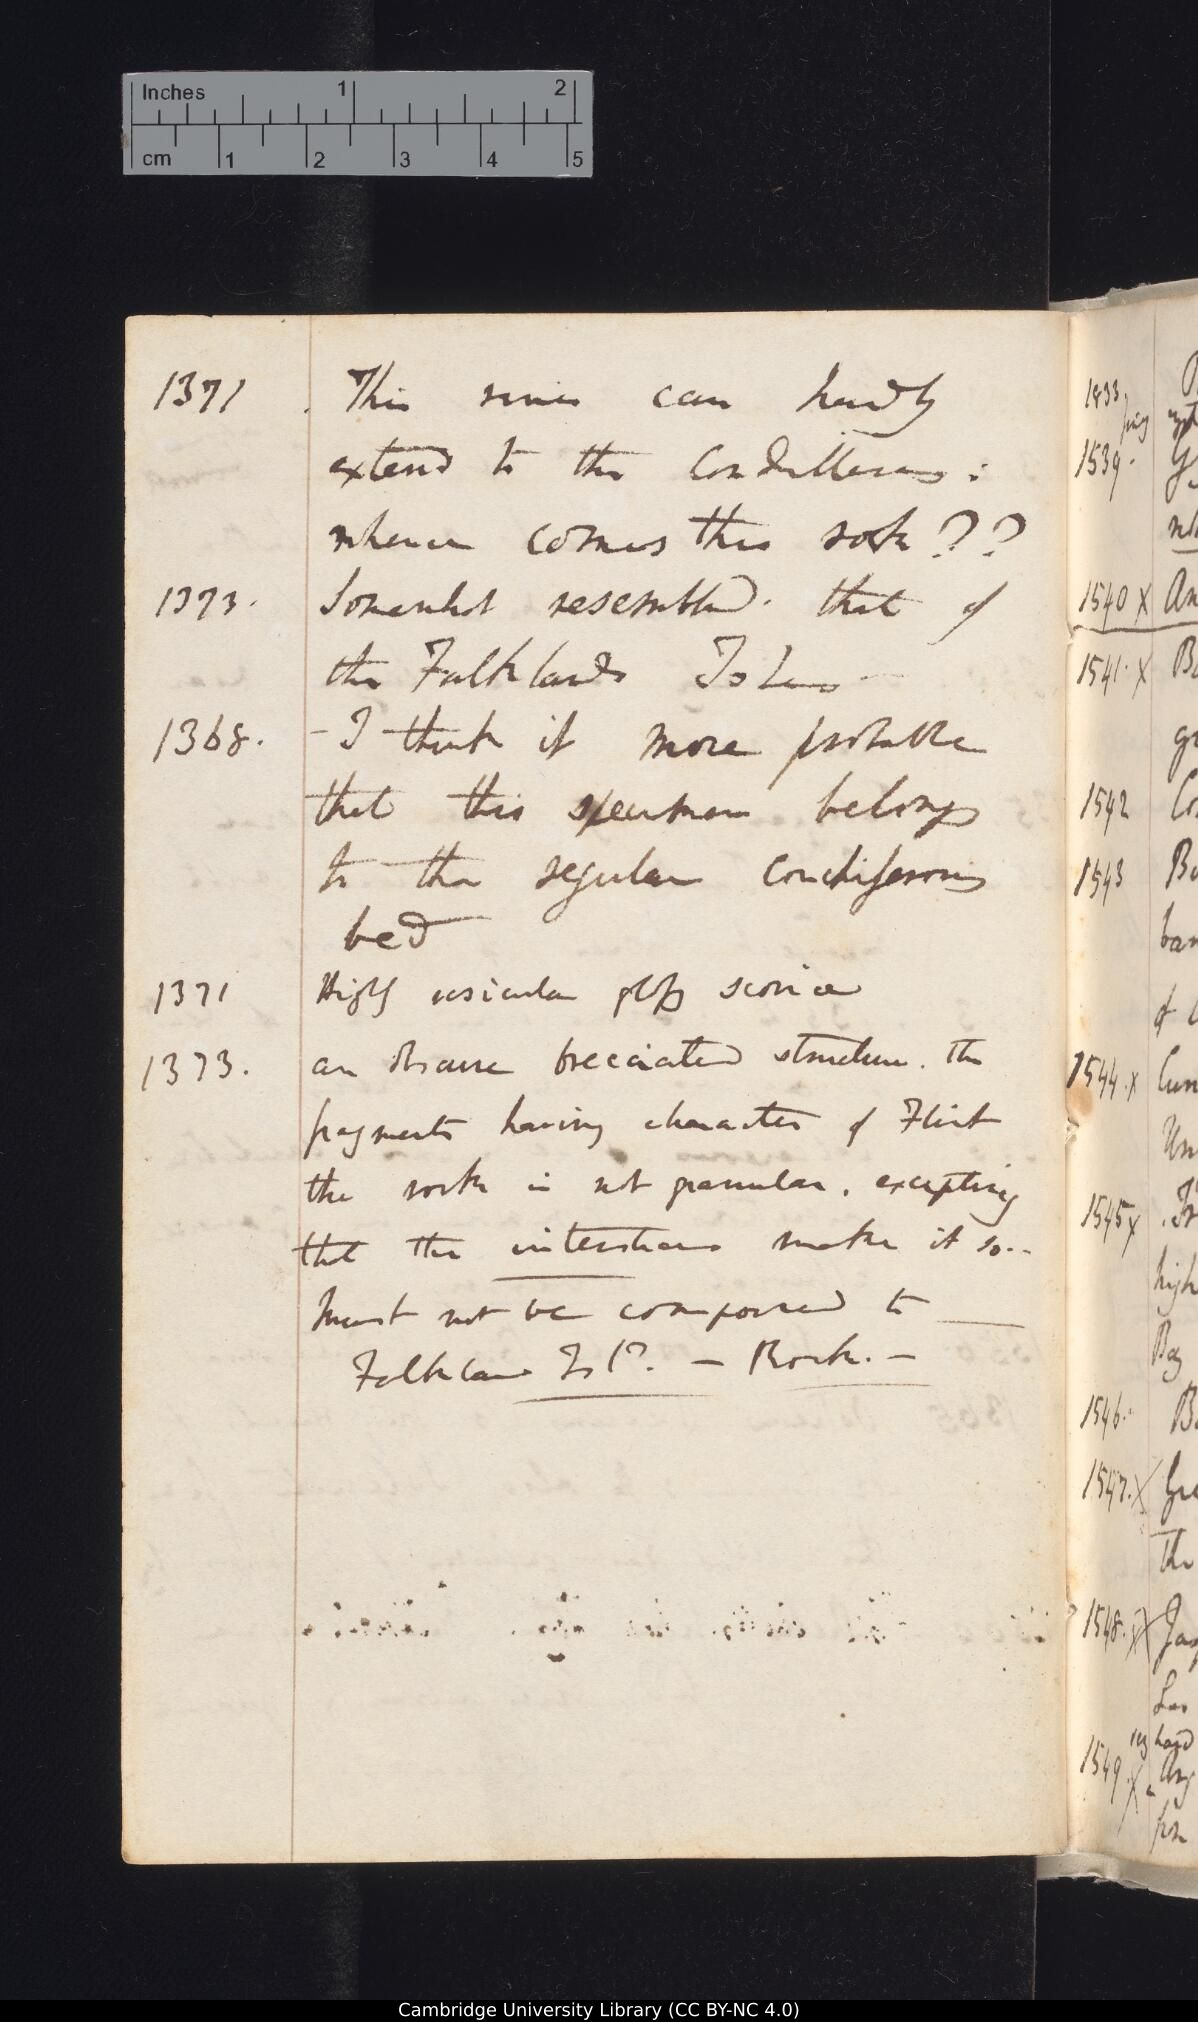 Inches 1 2
cm 1 2 3 4 5
1371 This river can hardly
extend to the Cordilleras:
whence comes this rock??
1373. Somewhat resembled. that of
the Falklands Islds
1368. - I think it more probable
that this specimen belongs
to the regular conchiferous
bed
1371 Highly vesicular glossy scoriæ
1373. an obscure brecciated structure. the
fragments having character of Flint
the rock is not granular. excepting
that the interstices make it so..
Must not be compared to
Falkland Isd. — Rock. —
1833
1539.
1540 X
1541. X
1542
1543
ban
of
1544. X
1545 X
high
Bay
1546.
1547. X
The
1548. X
hard
1549. X
Cambridge University Library (CC BY-NC 4.0)